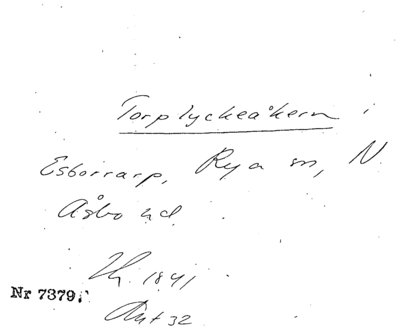 Torplyckeåkern i
Esborrarp, Rya sn, N.
Åsbo hd.
1841
Nr 7379.
Akt 32